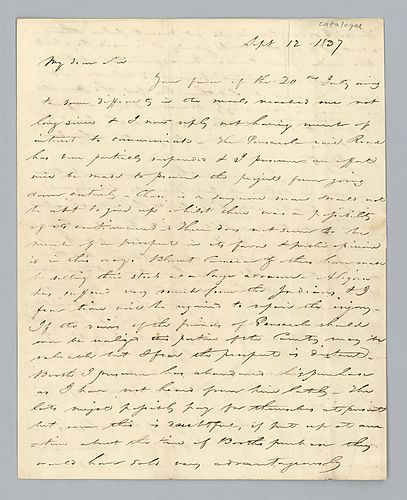 cataloged
Sept. 12 1837
My dear Sir
Your favor of the 20th July owing
to some difficulty in the mails reached me not
long since & I now reply not having much of
interest to communicate. The Pensacola rail Road
has been partially suspended & I presume an effort
will be made to prevent the project from going
down entirely. There is a sanguine man would not
be apt to give up whilst there was a possibility
of its continuance. There does not seem to be
much of a prospect in its favor & public opinion
is in this way.
selling this stock at a large discount.
has suffered very much from the Indians & I
fear time will be required to repair the injury.
If the views of the friends of Pensacola should
ever be realized this portion of the Country may be
valuable but I fear the prospect is distant.
Booth I presume has abandoned his purchase
as I have not heard from him lately. The
lots might possibly pay for themselves at present
but even this is doubtful, if put up at auc
=tion about the time of Booths purchase they
would have sold very advantageously